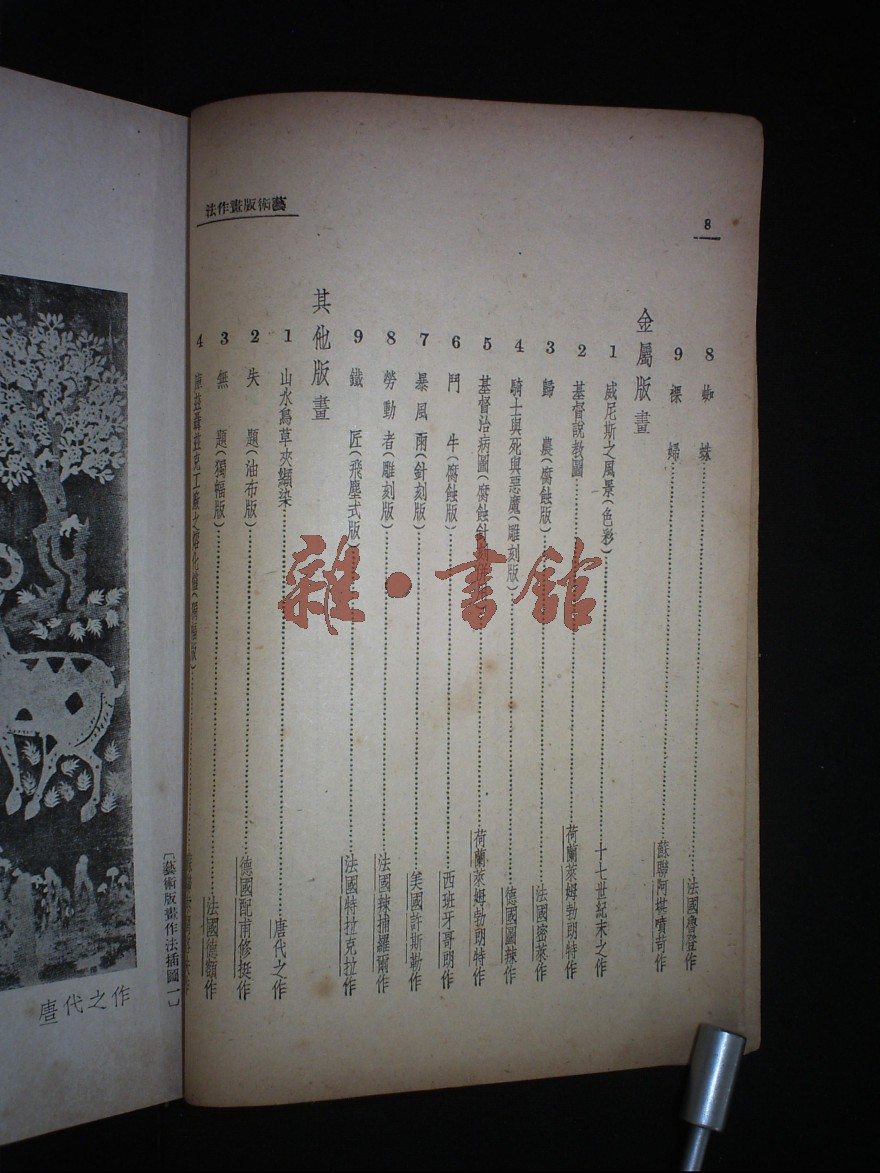 藝術版畫作法
8
8 蜘蛛……法國魯登作
9 裸婦……蘇聯阿堪噴苛作
金屬版畫
1 威尼斯之風景(色彩)……十七世紀末之作
2 基督說教圖……荷蘭萊姆勃朗特作
3 歸農(腐蝕版)……法國密萊作
4 騎士與死與惡魔(雕刻版)……德國圖辣作
5 基督治病圖(腐蝕針刻……荷蘭萊姆勃朗特作
6 鬥牛(腐蝕版)……西班牙哥朗作
7 暴風雨(針刻版)……美國許斯勒作
8 勞動者(雕刻版)……法國辣捕羅爾作
9 鐵匠(飛塵式版)……法國特拉克拉作
其他版畫
1 山水鳥草夾纈染……唐代之作
2 失題(油布版)……德國配甫修挺作
3 無題(獨幅版)……法國德頷作
4 克工廠之
雜·書館
〔藝術版畫作法插圖一〕
唐代之作